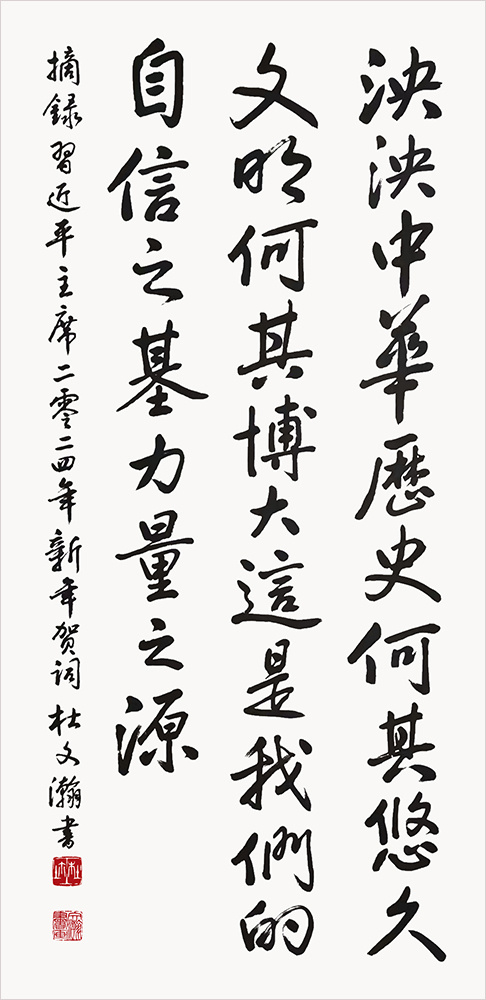 泱泱中華歷史何其悠久
文明何其博大這是我們的
自信之基力量之源
摘録習近平主席二零二四年新年贺词 杜文瀚書